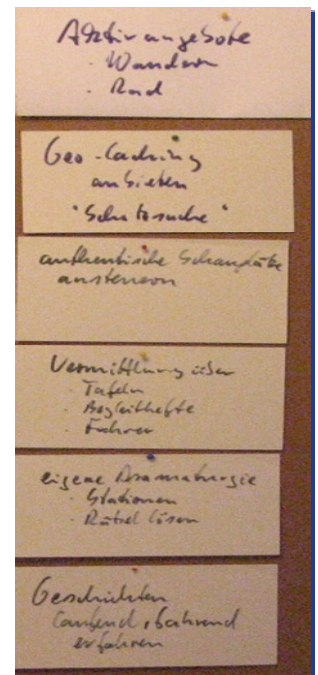 Aktivangebote
· Wandern
· Rad
Geo-Caching
anbieten
"Schatzsuche"
authentische Schauplätze
ansteuern
Vermittlung über
· Tafeln
· Begleithefte
· Führer
eigene Dramaturgie
· Stationen
· Rätsel lösen
Geschichten
laufend,
erfahren